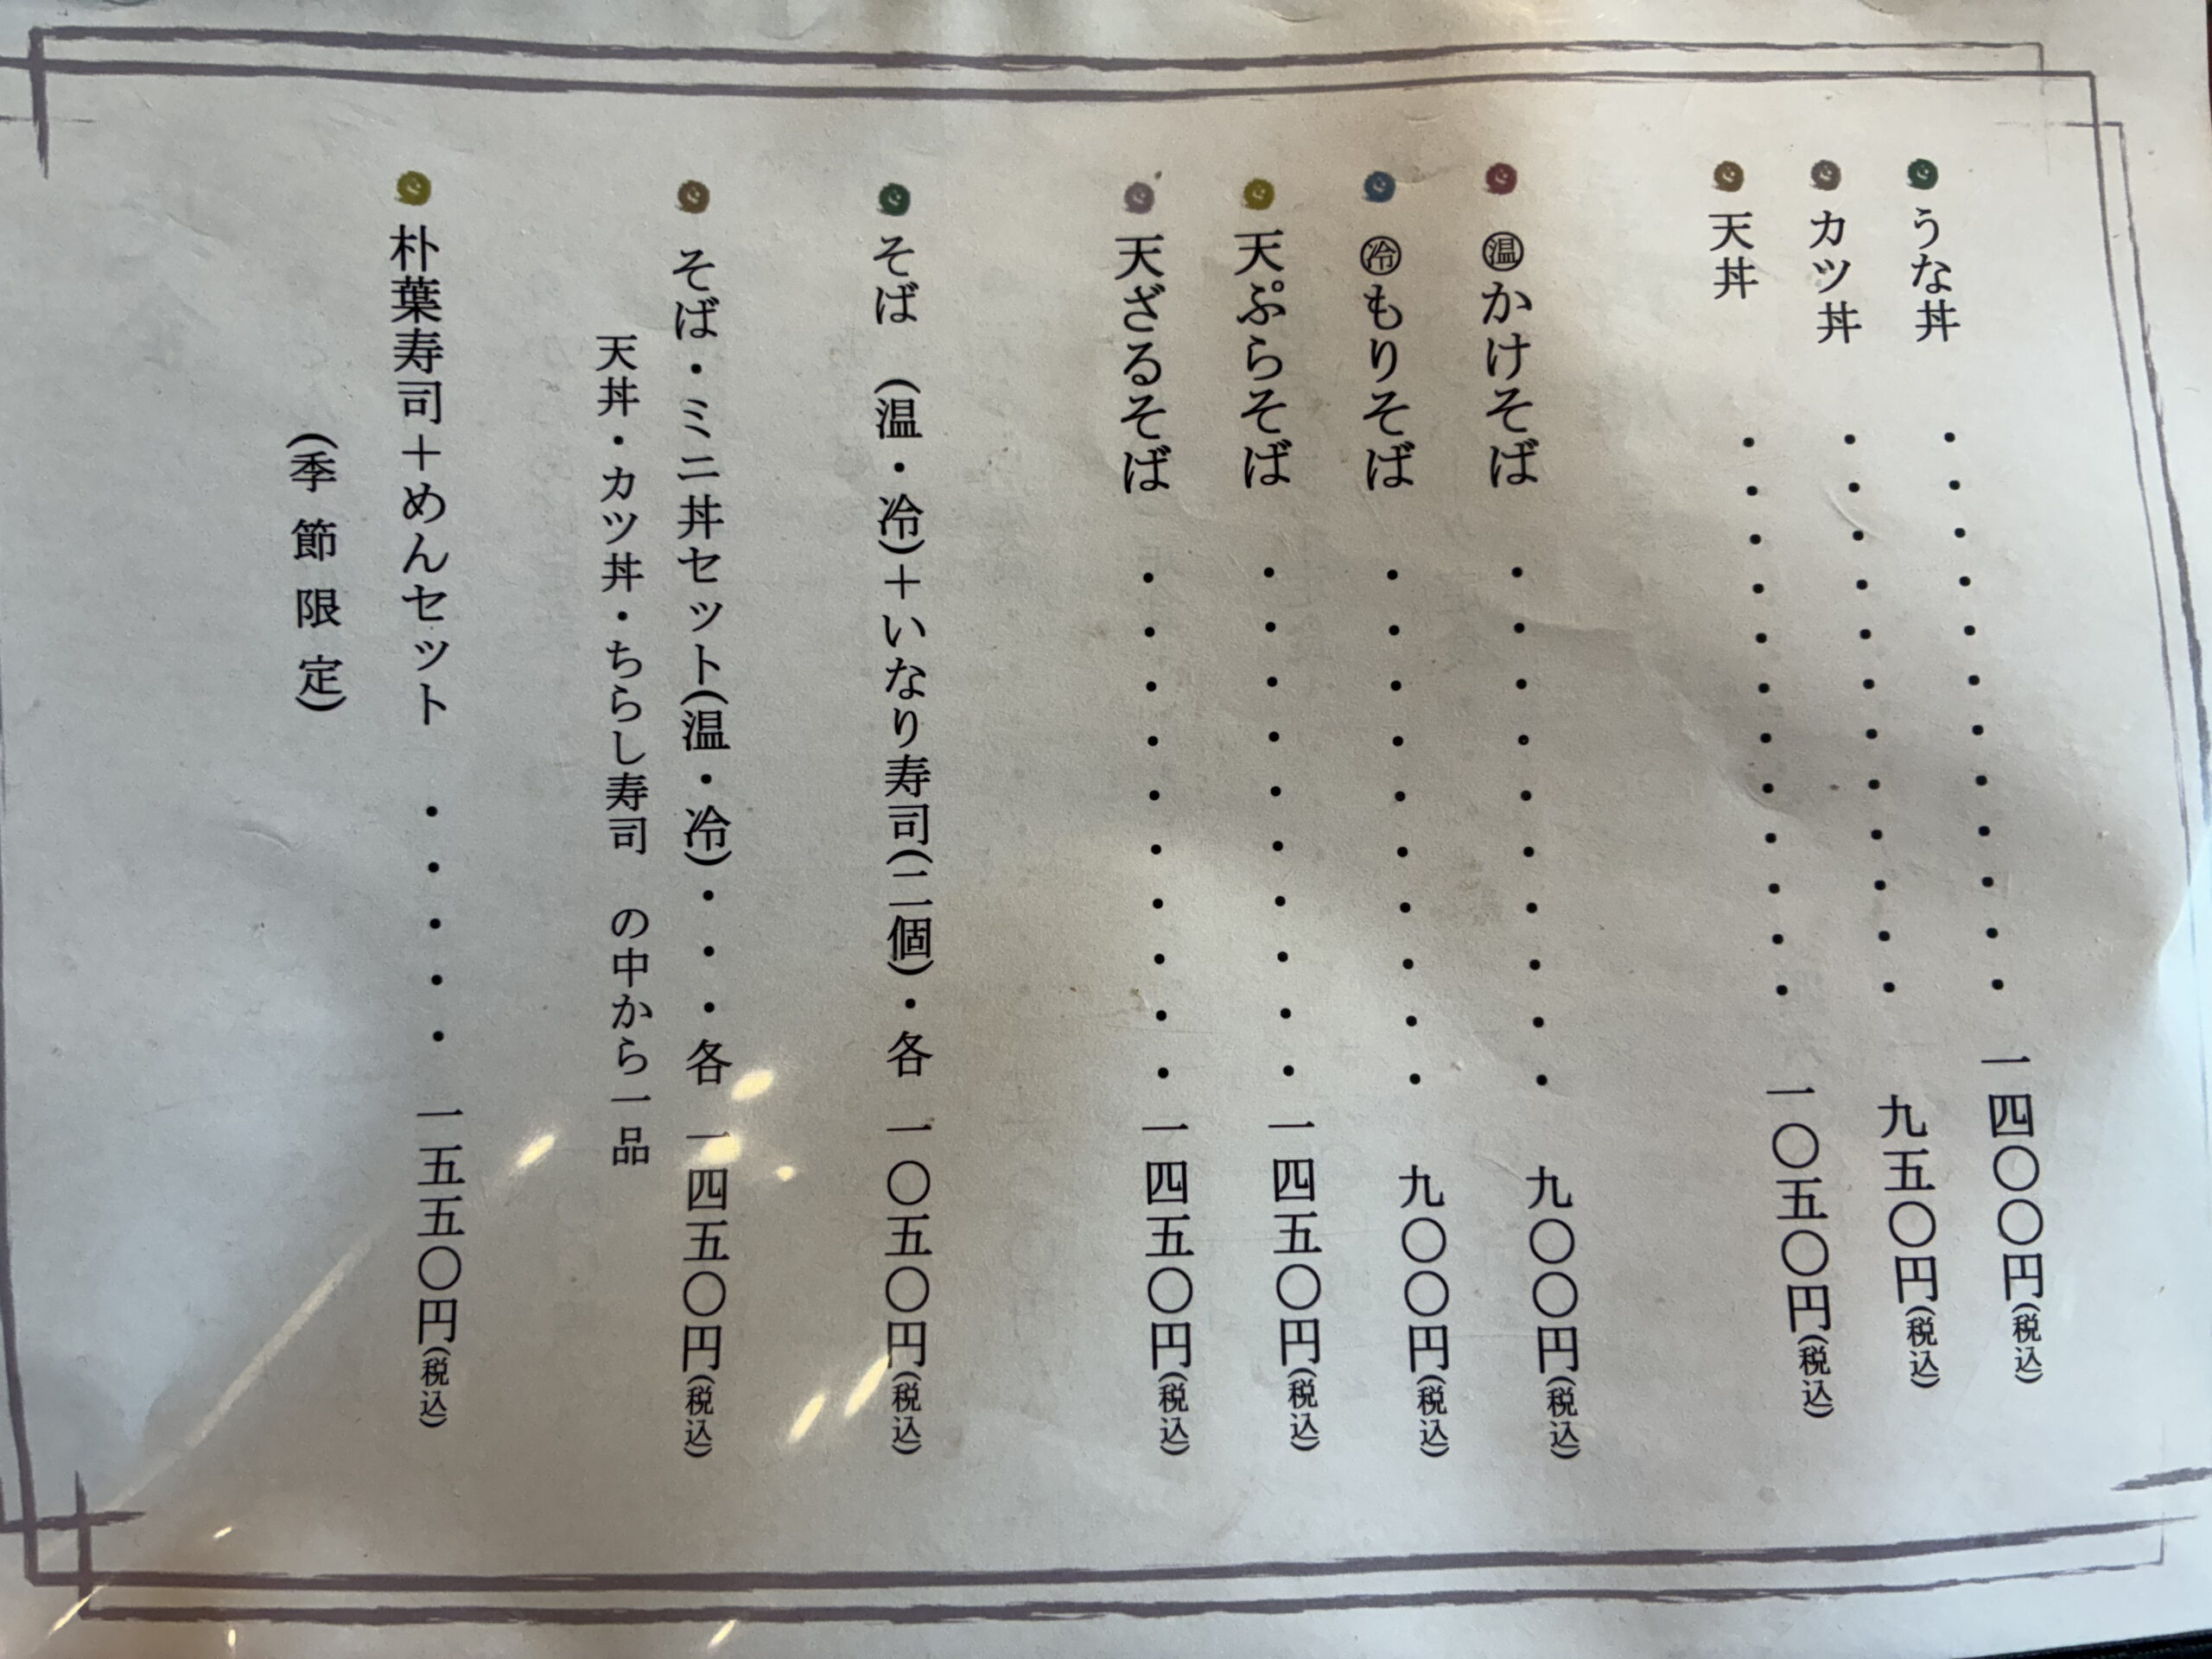 うな丼・・・・・・・・・・・・一四〇〇円(税込)
カツ丼・・・・・・・・・・・・九五〇円(税込)
天丼・・・・・・・・・・・・一〇五〇円(税込)
㊎かけそば・・・・・・・・・・九〇〇円(税込)
㊎もりそば・・・・・・・・・・九〇〇円(税込)
天ぷらそば・・・・・・・・・・一四五〇円(税込)
天ざるそば・・・・・・・・・・一四五〇円(税込)
そば (温・冷)+いなり寿司(二個)・各 一〇五〇円(税込)
そば・ミニ丼セット(温・冷)・・・各 一四五〇円(税込)
天丼・カツ丼・ちらし寿司 の中から一品
朴葉寿司+めんセット・・・・・一五五〇円(税込)
(季節限定)